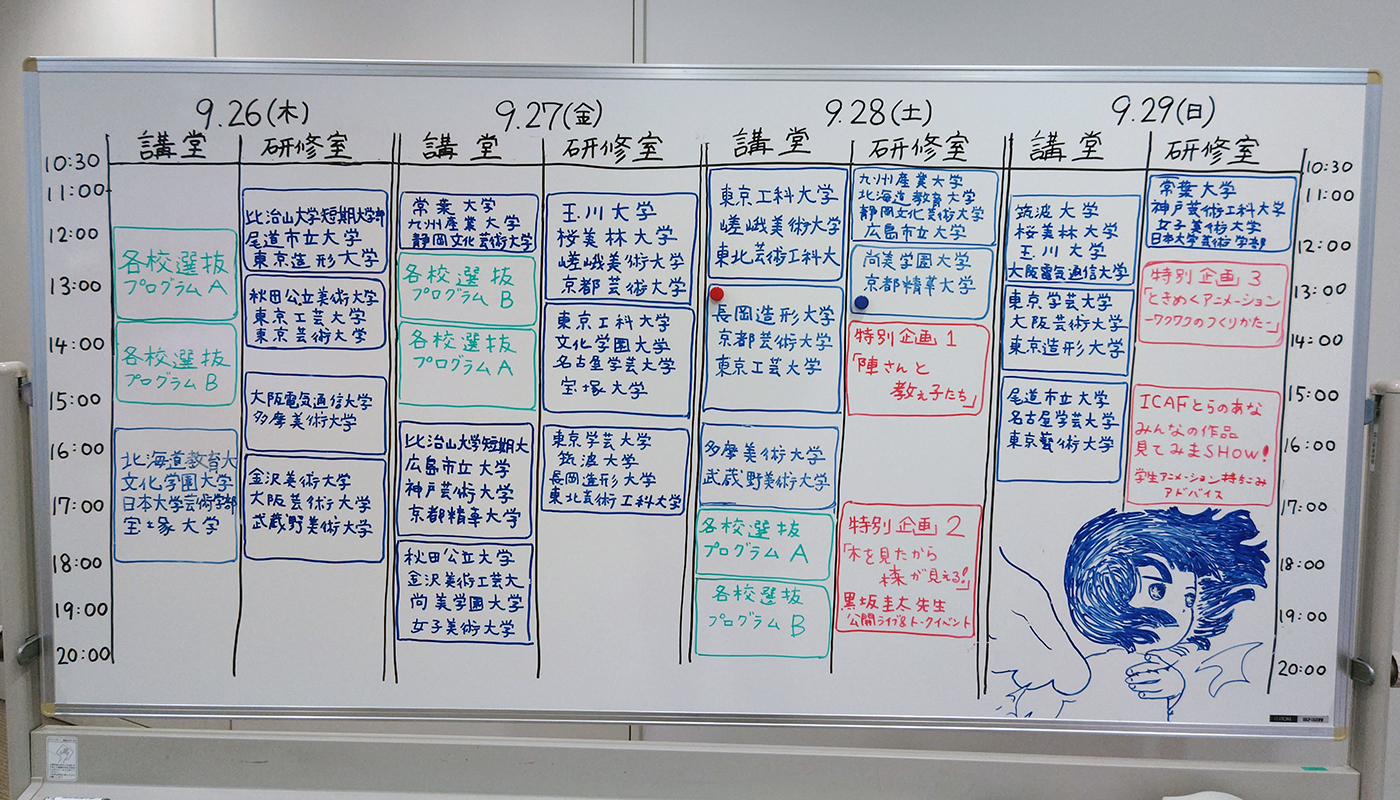 9.26(木)
講堂
研修室
9.27(金)
講堂
研修室
9.28(土)
講堂
研修室
9.29(日)
講堂
研修室
10:30
11:00
12:00
13:00
14:00
15:00
16:00
17:00
18:00
19:00
20:00
各校選抜
プログラムA
各校選抜
プログラムB
北海道教育大
文化学園大学
日本大学芸術学部
宝塚大学
比治山大学短期大学部
尾道市立大学
東京造形大学
秋田公立美術大学
東京工芸大学
東京芸術大学
大阪電気通信大学
多摩美術大学
金沢美術大学
大阪芸術大学
武蔵野美術大学
常葉大学
九州産業大学
静岡文化芸術大学
各校選抜
プログラムB
各校選抜
プログラムA
比治山大学短期大
広島市立大学
神戸芸術大学
京都精華大学
秋田公立大学
金沢美術工芸大
尚美学園大学
女子美術大学
玉川大学
桜美林大学
嵯峨美術大学
京都芸術大学
東京工科大学
文化学園大学
名古屋学芸大学
宝塚大学
東京学芸大学
筑波大学
長岡造形大学
東北芸術工科大学
東京工科大学
嵯峨美術大学
東北芸術工科大
長岡造形大学
京都芸術大学
東京工芸大学
多摩美術大学
武蔵野美術大学
各校選抜
プログラムA
各校選抜
プログラムB
九州産業大学
北海道教育大学
静岡文化芸術大学
広島市立大学
尚美学園大学
京都精華大学
特別企画1
「陣さんと
教え子たち」
特別企画2
「木を見たから
森が見える!」
黒坂圭太先生
公開ライブ&トークイベント
筑波大学
桜美林大学
玉川大学
大阪電気通信大学
東京学芸大学
大阪芸術大学
東京造形大学
尾道市立大学
名古屋学芸大学
東京藝術大学
常葉大学
神戸芸術工科大学
女子美術大学
日本大学芸術学部
特別企画3
「ときめくアニメーション
ーワクワクのつくりかたー」
ICAFとらのあな
みんなの作品
見てみまSHOW!
学生アニメーション持ちこみ
アドバイス
10:30
11:00
12:00
13:00
14:00
15:00
16:00
17:00
18:00
19:00
20:00